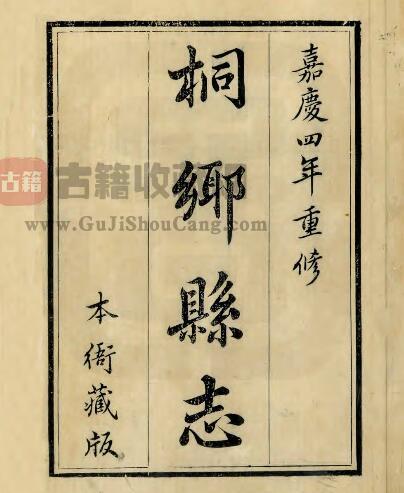 嘉慶四年重修
桐鄉縣志
本衙藏版
古籍 古籍收藏
www.GuJiShouCang.com